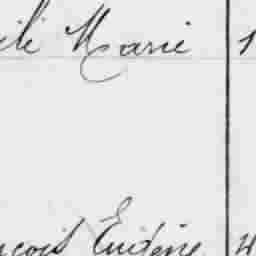 ile Marie 1
nçois Eugène 4